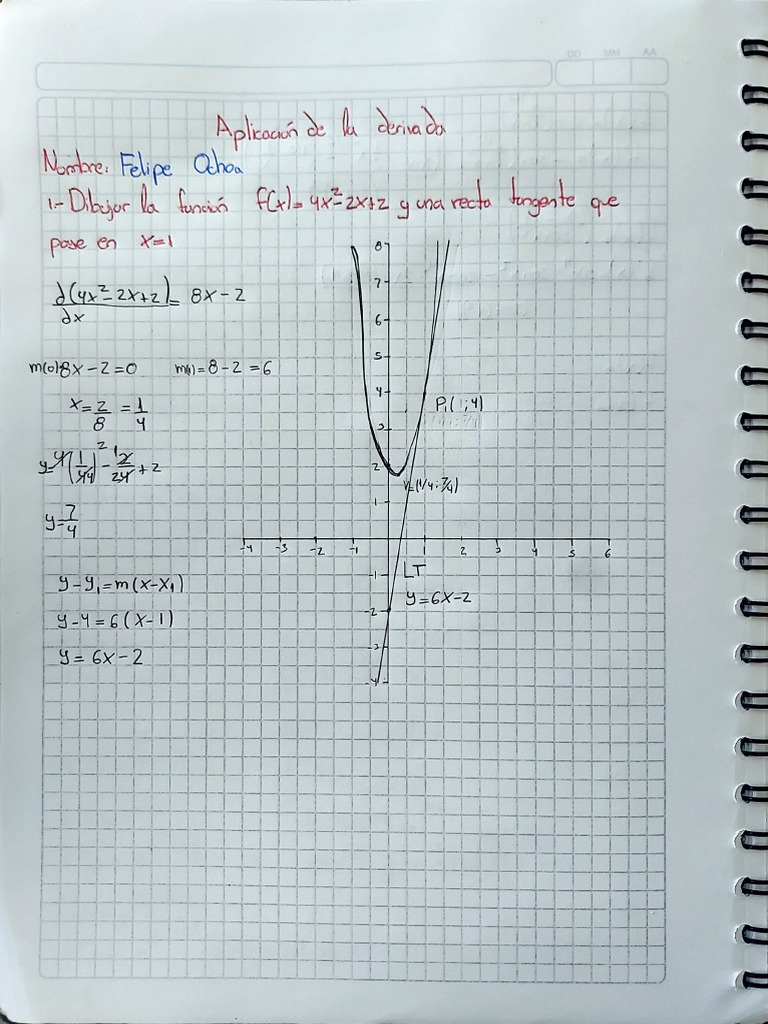 DD MM AA
Aplicación de la derivada
Nombre: Felipe Ochoa
1.- Dibujar la función f(x)=4x²-2x+2 y una recta tangente que
pase en x=1
d(4x²-2x+2) = 8x-2
dx
m(0)=8x-2=0 m(1)=8-2=6
x=2/8=1/4
y=4(1/4)²-2/4+2
y=7/4
y-y₁=m(x-x₁)
y-4=6(x-1)
y=6x-2
8
7
6
5
4
P₁(1;4)
3
2
V=(1/4;7/4)
1
-4 -3 -2 -1 1 2 3 4 5 6
-1
LT
y=6x-2
-2
-3
-4